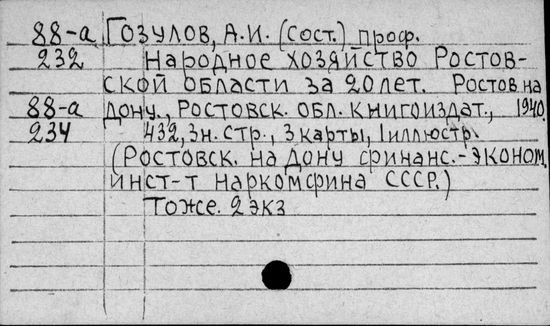 88-а Гозулов, А.И. (сост.) проф.
232 Народное хозяйство Ростов-
ской области за 20 лет. Ростов на
88-а Дону., Ростовск. обл. книгоиздат., 1940,
234 432, 3н. стр., 3 карты, 1 иллюстр.
(Ростовск. на Дону финанс.-эконом.
инст-т Наркомфина СССР.)
Тоже. 2 экз